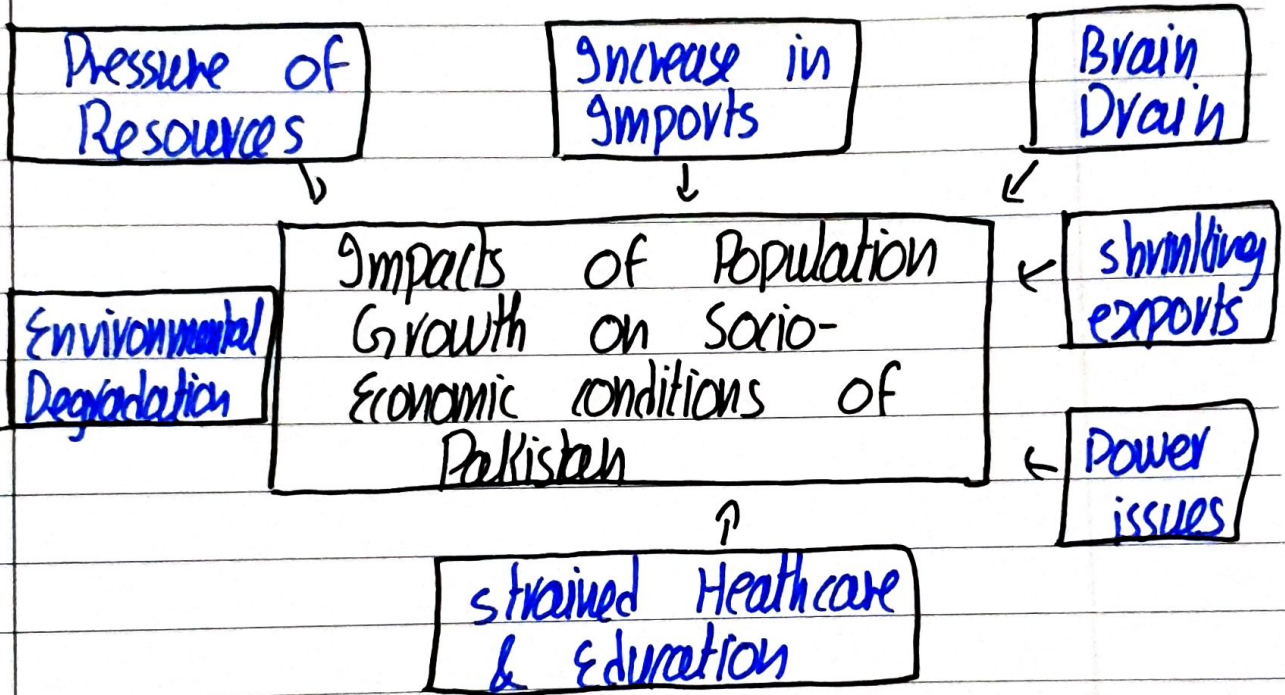 Pressure of
Resources
Increase in
Imports
Brain
Drain
Impacts of Population
Growth on Socio-
Economic conditions of
Pakistan
shrinking
exports
Environmental
Degradation
Power
issues
strained Heathcare
& Education